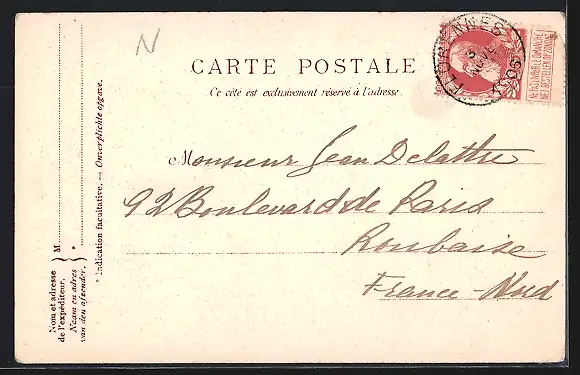 N
CARTE POSTALE
Ce côté est exclusivement réservé à l'adresse.
FLORENNES
1905
NE PAS LIVRER LE DIMANCHE
NIET BESTELLEN OP ZONDAG
Monsieur Jean Delattre
92 Boulevard de Paris
Roubaise
France-Nord
Nom et adresse
de l'expéditeur.
Naam en adres
van den afzender.
M
*
* Indication facultative. — Onverplichte opgave.